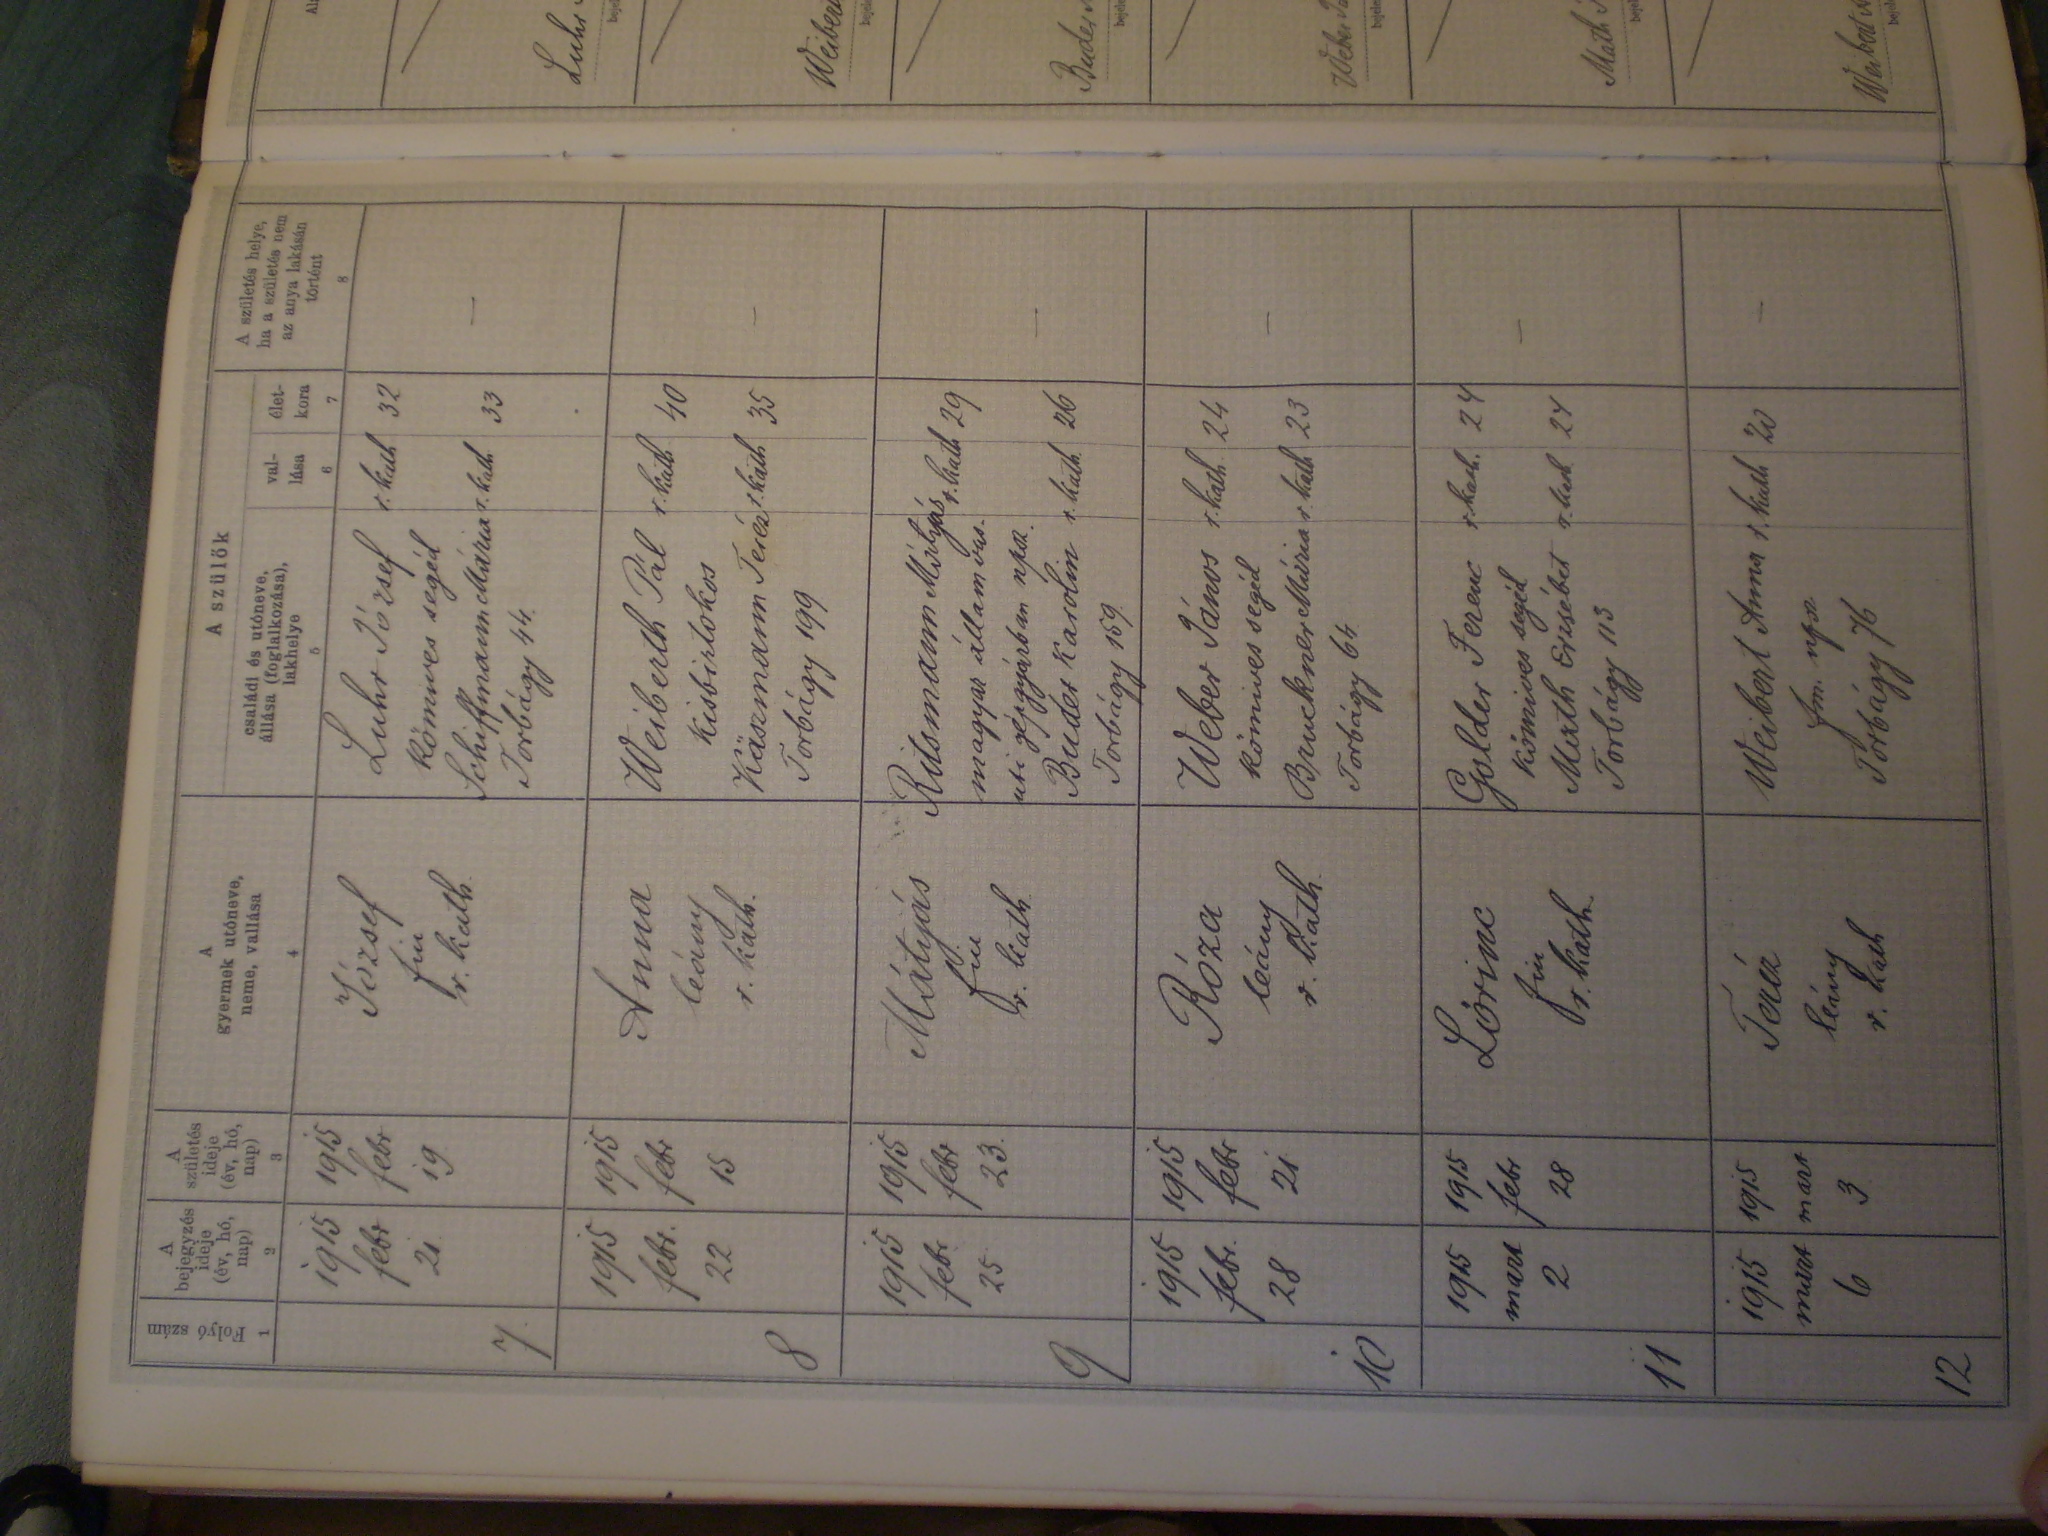 Folyó szám
1
A
bejegyzés
ideje
(év, hó,
nap)
2
A
születés
ideje
(év, hó,
nap)
3
A
gyermek utóneve,
neme, vallása
4
A szülők
családi és utóneve,
állása (foglalkozása),
lakhelye
5
val-
lása
6
élet-
kora
7
A születés helye,
ha a születés nem
az anya lakásán
történt
8
7
1915
febr
21
1915
febr
19
József
fiu
r. kath.
Luhr József r. kath 32
kőmives segéd
Schiffmann Mária r. kath. 33
Torbágy 44.
—
8
1915
febr.
22
1915
febr
15
Anna
leány
r. kath.
Weiberth Pál r. kath 40
kisbirtokos
Käszmann Teréz r. kath 35
Torbágy 199
—
9
1915
febr.
25
1915
febr
23.
Mátyás
fiu
r. kath
Mátyás r. kath 29
magyar államvas-
uti gépgyárban npsz.
Buder Karolin r. kath. 26
Torbágy 159.
—
10
1915
febr.
28
1915
febr.
21
Róza
leány
r. kath.
Weber János r. kath. 24
kőmives segéd
Bruckner Mária r. kath 23
Torbágy 64
—
11
1915
mart
2
1915
febr
28
Lőrinc
fiu
r. kath.
Golder Ferenc r. kath. 24
kőmives segéd
Math Erzsébet r. kath 24
Torbágy 113
—
12
1915
márt
6
1915
mart
3
Teréz
leány
r. kath
Weibert Anna r. kath 20
fm. npsz.
Torbágy 76
—
Luhr
Weibert
Buder
Weber
Math
Weibert